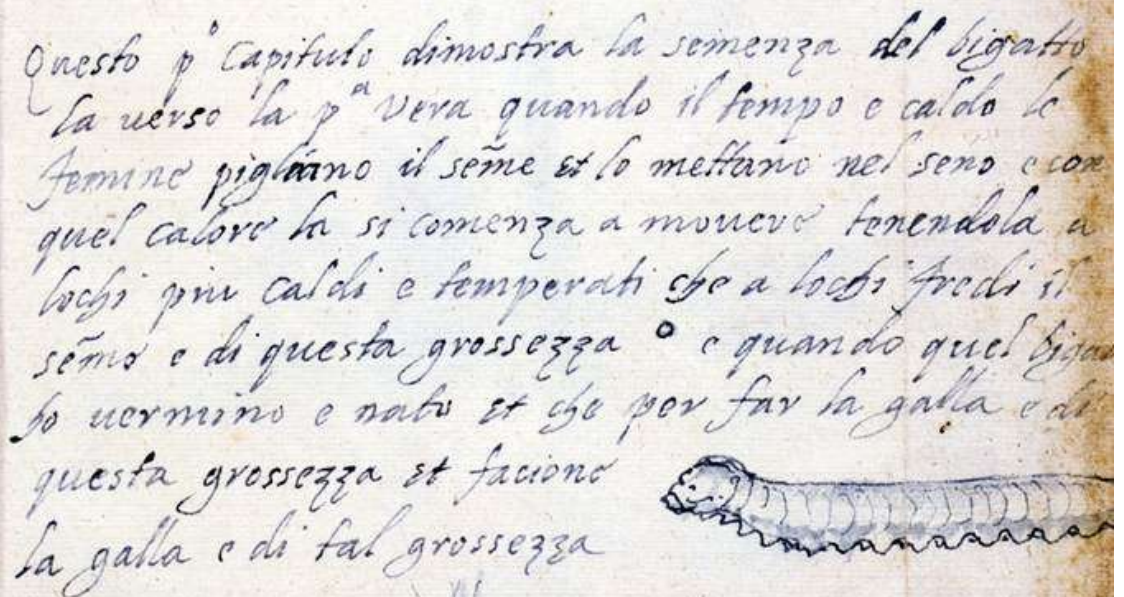 Questo pº Capitulo dimostra la semenza del bigatto
la verso la pª vera quando il tempo e caldo le
femine pigliano il sẽme et lo mettano nel seno e con
quel calore la si comenza a movere tenendola a
lochi piu caldi e temperati che a lochi fredi il
sẽme e di questa grossezza o e quando quel bigat
to vermino e nato et che per far la galla e di
questa grossezza et facione
la galla e di tal grossezza